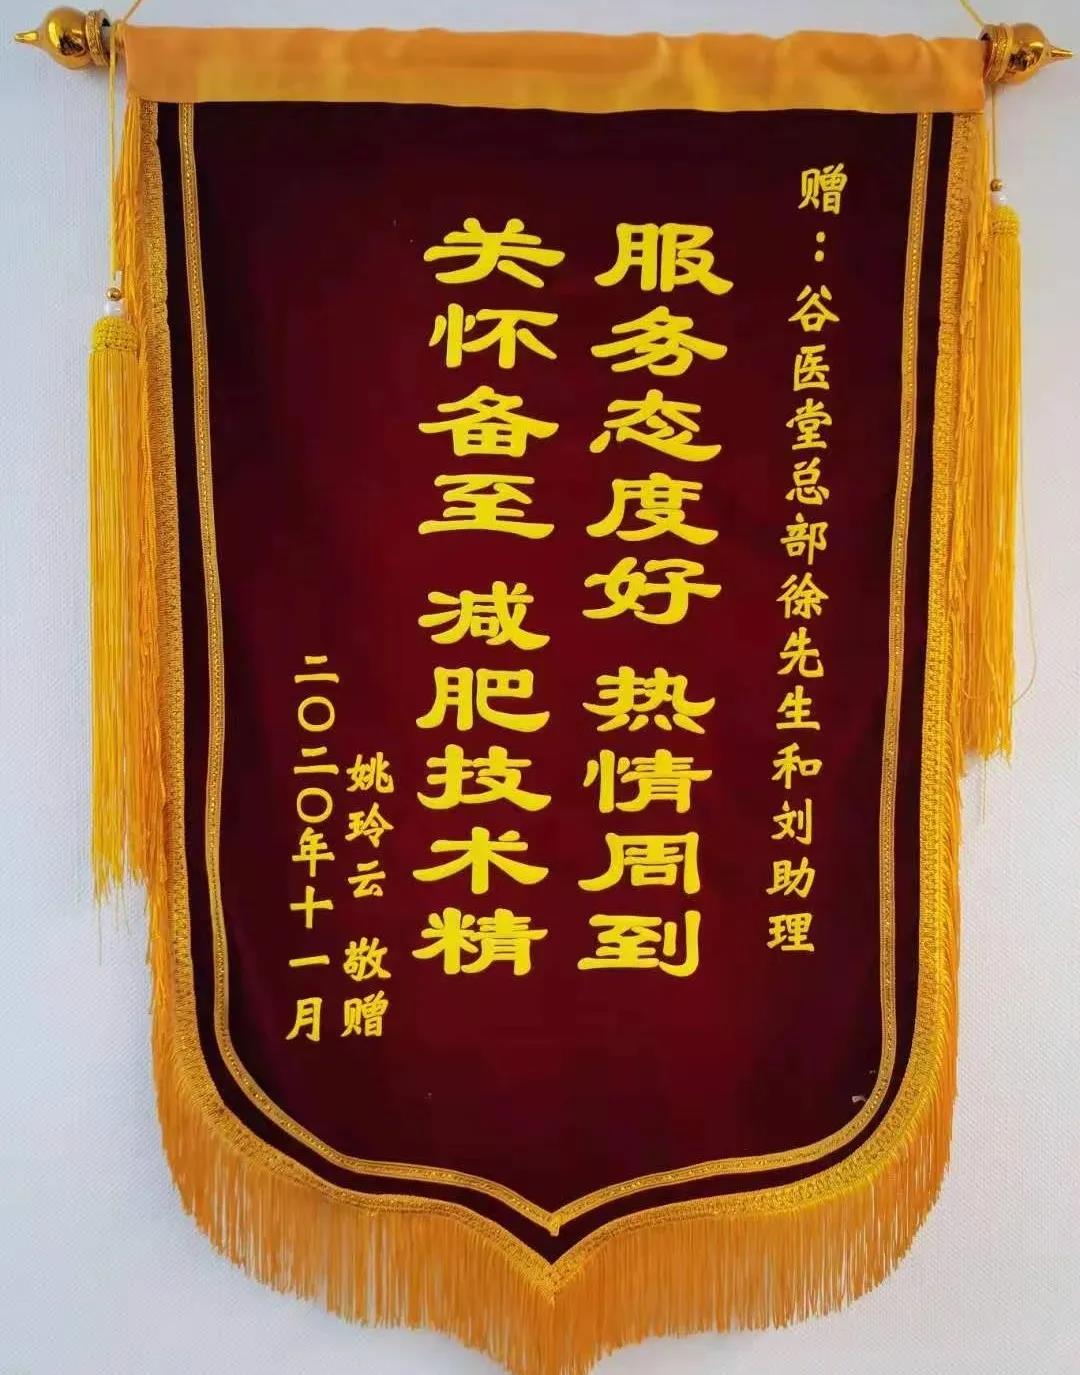 赠：谷医堂总部徐先生和刘助理
服务态度好 热情周到
关怀备至 减肥技术精
姚玲云 敬赠
二〇二〇年十一月